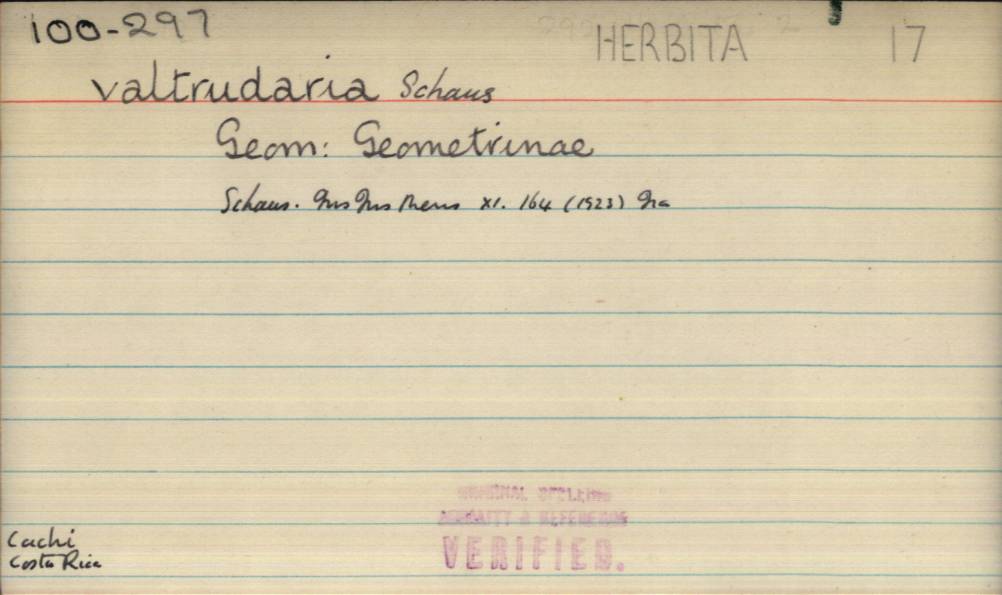 100-297
HERBITA 17
valtrudaria Schaus
Geom: Geometrinae
Schaus. Ins Ins Mens XI. 164 (1923)
ORIGINAL SPELLING
& REFERENCE
VERIFIED.
Cachi
Costa Rica